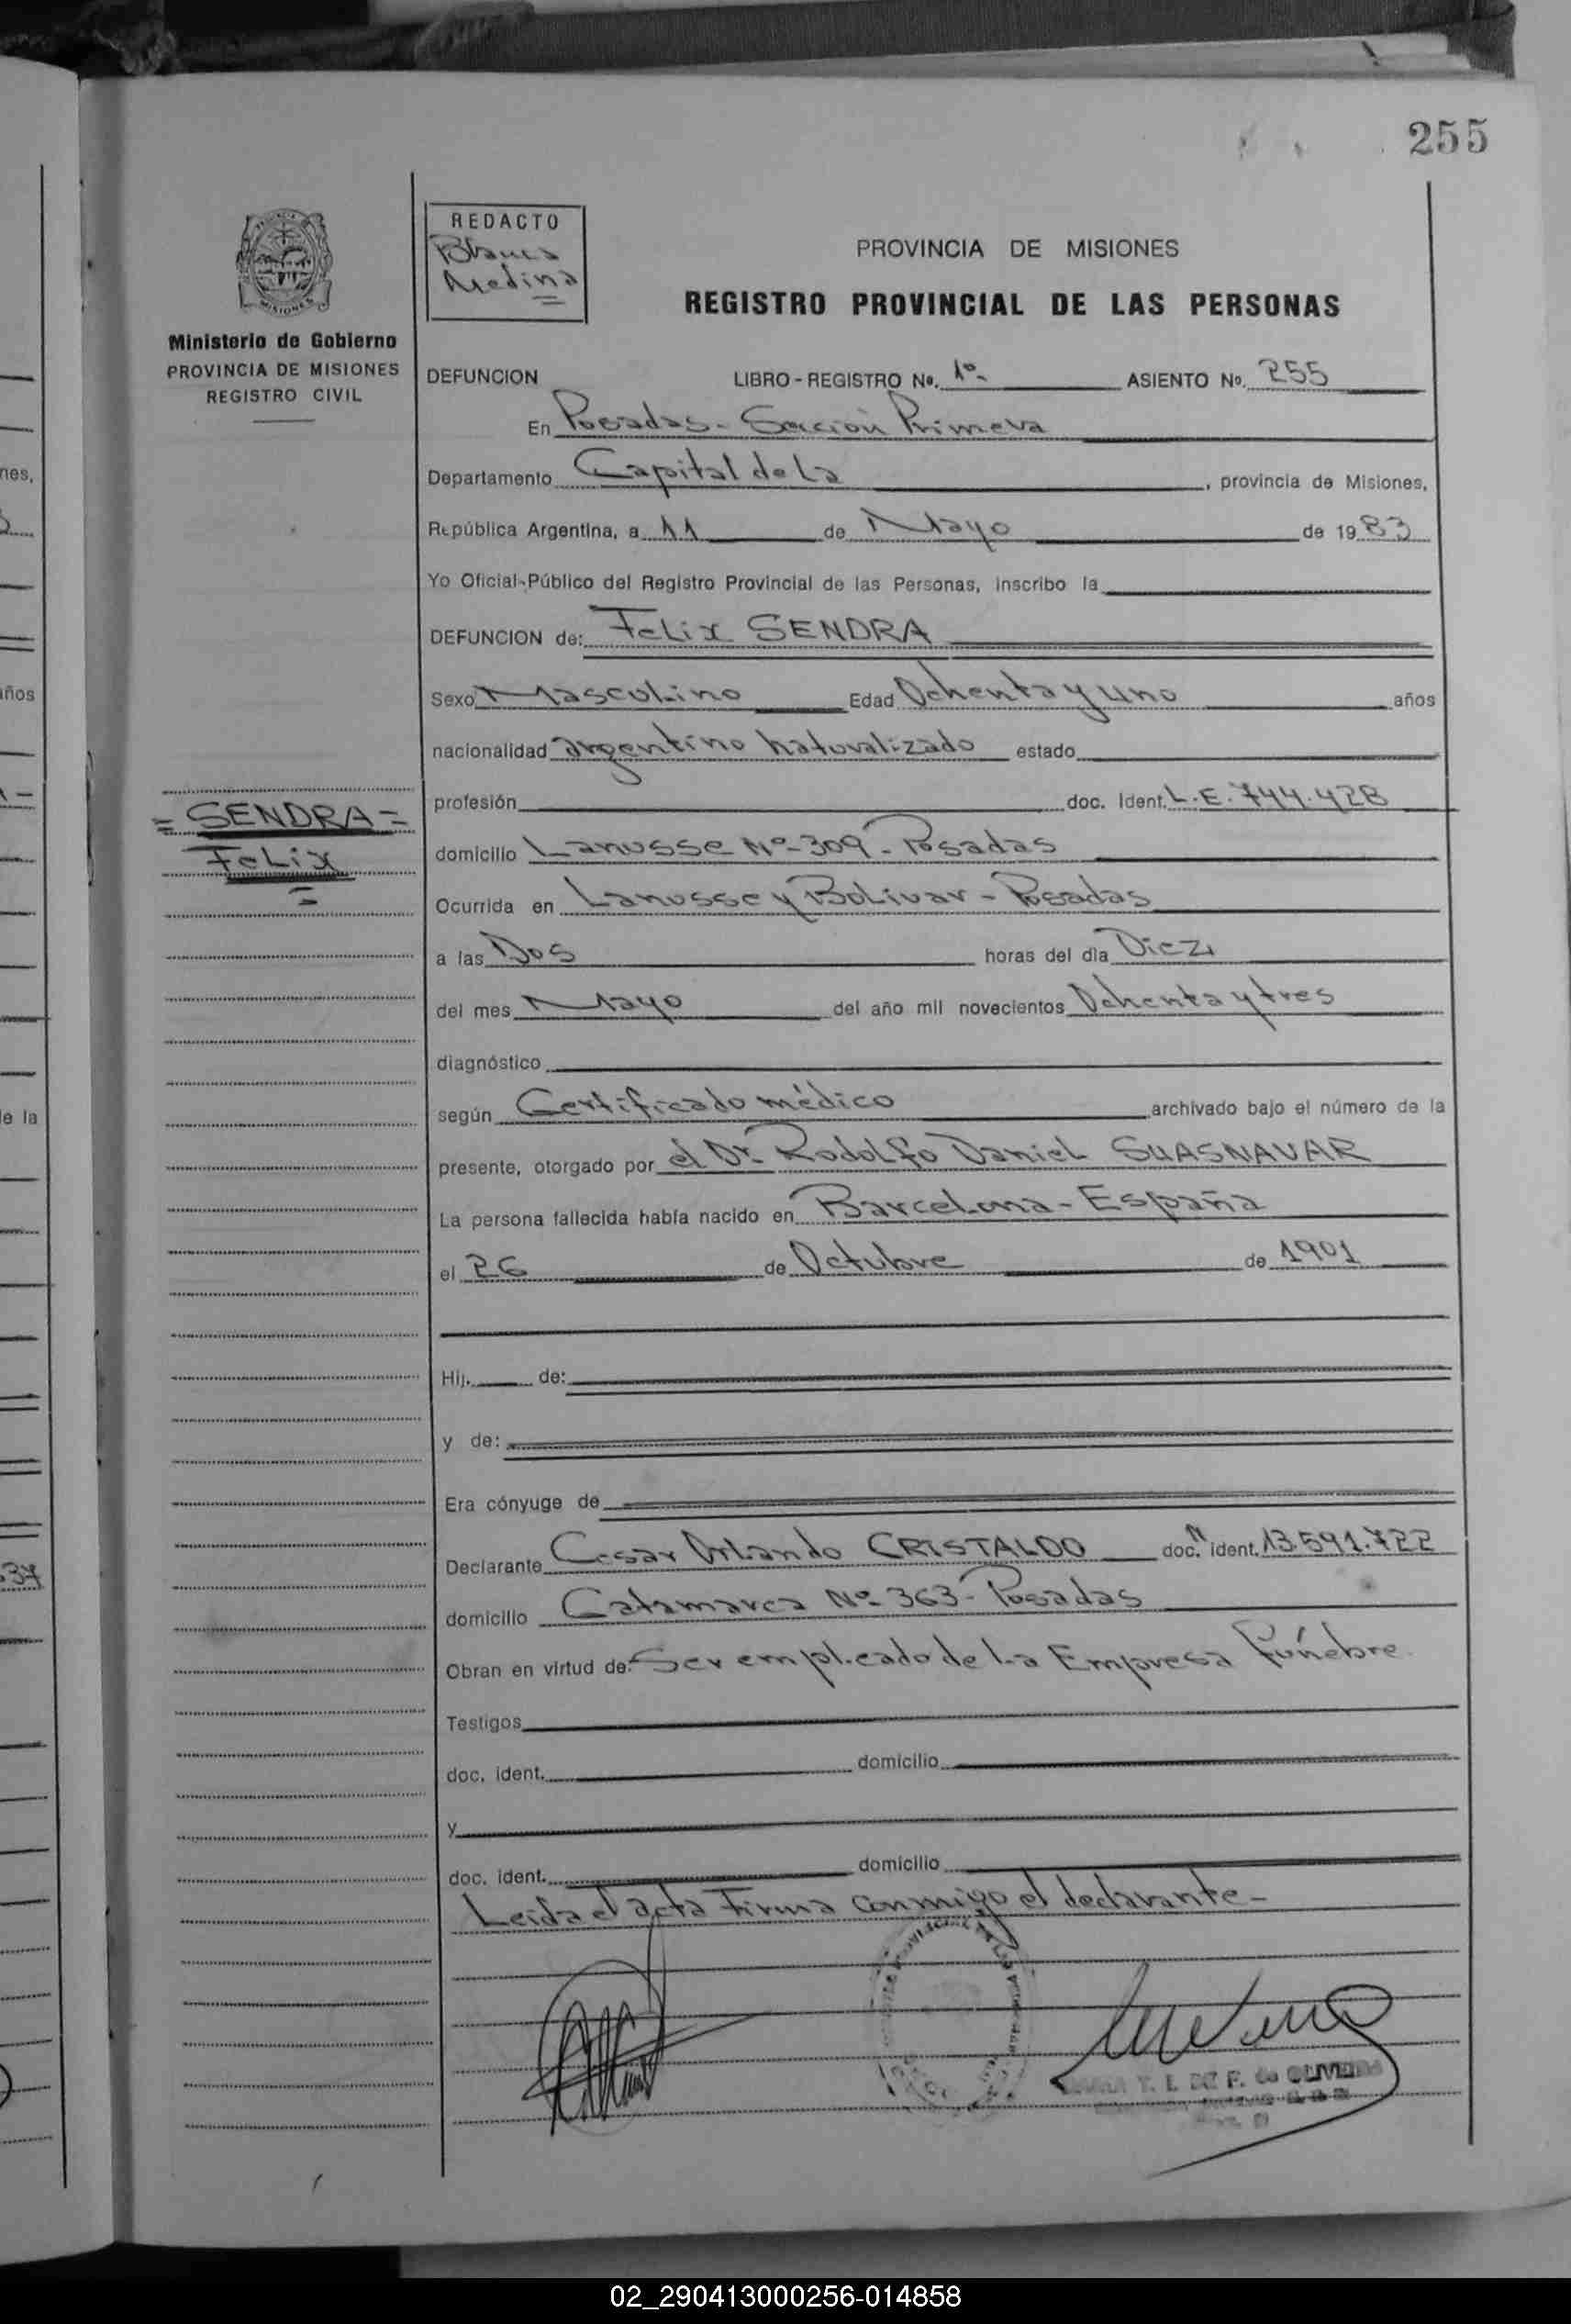 255
REDACTO
Blanca
Medina
PROVINCIA DE MISIONES
REGISTRO PROVINCIAL DE LAS PERSONAS
MISIONES
Ministerio de Gobierno
PROVINCIA DE MISIONES
REGISTRO CIVIL
DEFUNCION LIBRO - REGISTRO Nº. 1º- ASIENTO Nº. 255
En Posadas - Sección Primera
Departamento Capital de La, provincia de Misiones,
República Argentina, a 11 de Mayo de 1983
Yo Oficial Público del Registro Provincial de las Personas, inscribo la
DEFUNCION de: Felix SENDRA
Sexo Masculino Edad Ochenta y uno años
nacionalidad argentino naturalizado estado
= SENDRA =
Felix
=
profesión doc. Ident. L.E. 744.428
domicilio Lanusse Nº-309 - Posadas
Ocurrida en Lanusse y Bolivar - Posadas
a las Dos horas del día Diez
del mes Mayo del año mil novecientos Ochenta y tres
diagnóstico
según Certificado médico archivado bajo el número de la
presente, otorgado por el Dr. Rodolfo Daniel SUASNAVAR
La persona fallecida había nacido en Barcelona - España
el 26 de Octubre de 1901
Hij. de:
y de:
Era cónyuge de
Declarante Cesar Orlando CRISTALDO doc. N ident. 13.591.722
domicilio Catamarca Nº- 363 - Posadas
Obran en virtud de: Ser empleado de La Empresa Fúnebre
Testigos
doc. ident. domicilio
y
doc. ident. domicilio
Leída el acta Firma conmigo el declarante -
T. I. DE F. de OLIVEIRA
nes,
años
e la
.37
02_290413000256-014858